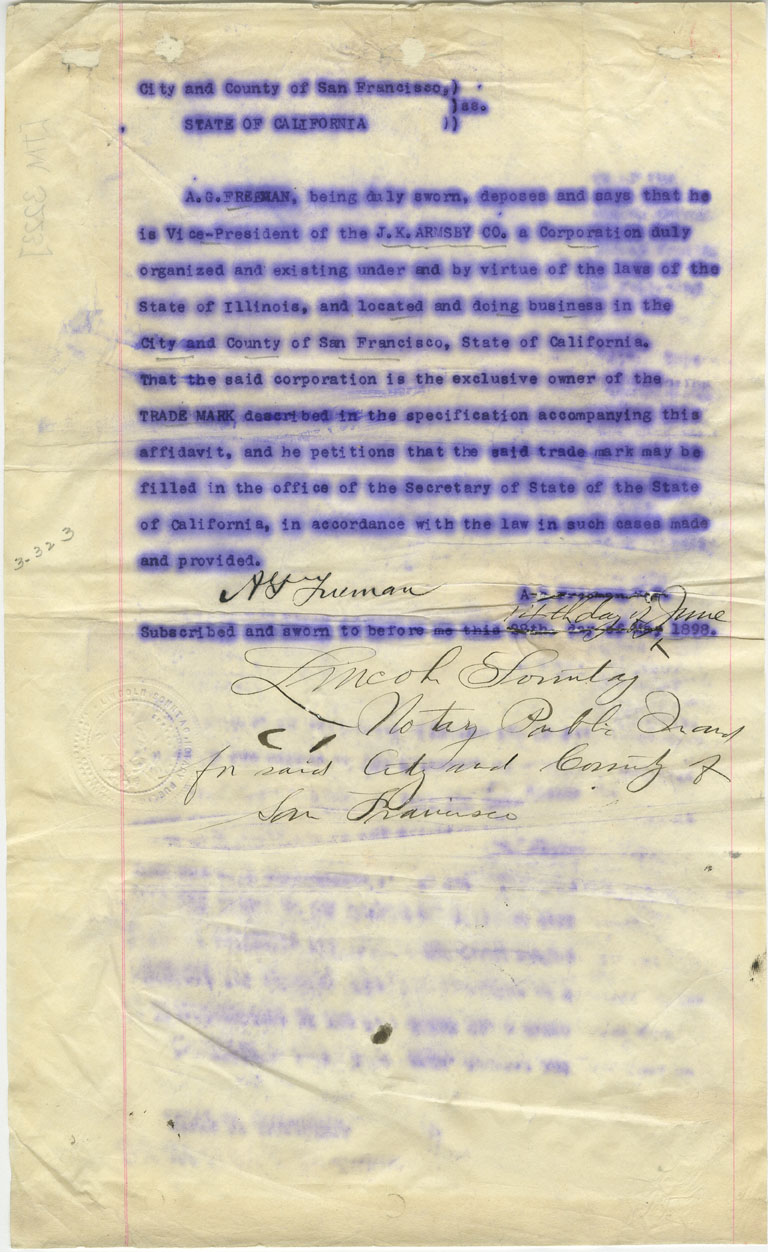 City and County of San Francisco,)
)ss.
STATE OF CALIFORNIA ))
A.G.FREEMAN, being duly sworn, deposes and says that he
is Vice-President of the J.K.ARMSBY CO. a Corporation duly
organized and existing under and by virtue of the laws of the
State of Illinois, and located and doing business in the
City and County of San Francisco, State of California.
That the said corporation is the exclusive owner of the
TRADE MARK described in the specification accompanying this
affidavit, and he petitions that the said trade mark may be
filled in the office of the Secretary of State of the State
of California, in accordance with the law in such cases made
and provided.
3-323
A G Freeman
day of June
Subscribed and sworn to before me this 1898.
Lincoln Sonntag
Notary Public In and
for said City and County of
San Francisco